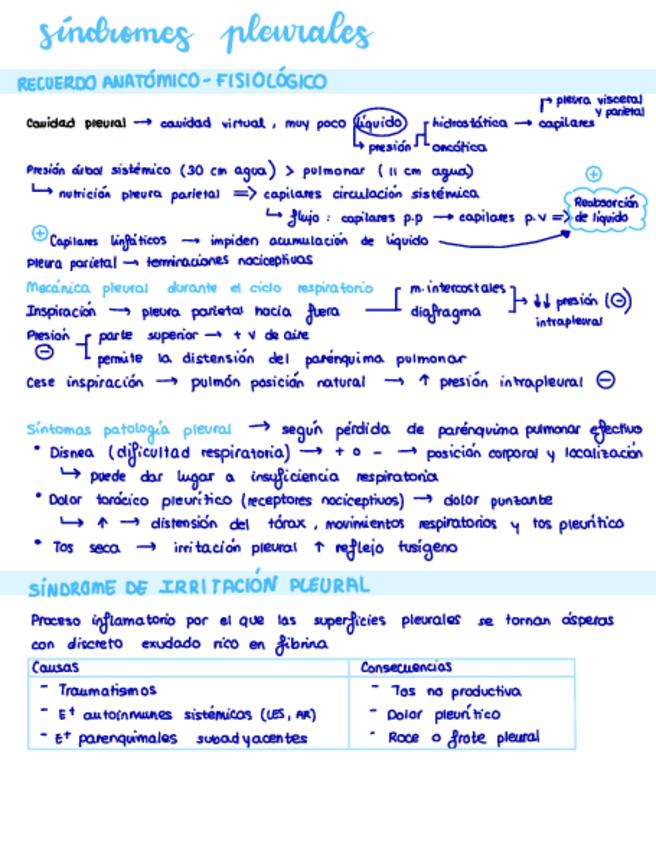 síndromes pleurales
RECUERDO ANATÓMICO - FISIOLÓGICO
→ pleura visceral y parietal
Cavidad pleural → cavidad virtual, muy poco líquido hidrostática → capilares
↳ presión oncótica
Presión árbol sistémico (30 cm agua) > pulmonar (11 cm agua)
↳ nutrición pleura parietal => capilares circulación sistémica
↳ flujo: capilares p.p → capilares p.v => Reabsorción de líquido
⊕
⊕ Capilares linfáticos → impiden acumulación de líquido
Pleura parietal → terminaciones nociceptivas
Mecánica pleural durante el ciclo respiratorio
Inspiración → pleura parietal hacia fuera — m. intercostales diafragma → ↓↓ presión (⊖) intrapleural
Presión ⊖ parte superior → + V de aire
permite la distensión del parénquima pulmonar
Cese inspiración → pulmón posición natural → ↑ presión intrapleural ⊖
Síntomas patología pleural → según pérdida de parénquima pulmonar efectivo
• Disnea (dificultad respiratoria) → + o - → posición corporal y localización
↳ puede dar lugar a insuficiencia respiratoria
• Dolor torácico pleurítico (receptores nociceptivos) → dolor punzante
↳ ↑ → distensión del tórax, movimientos respiratorios y tos pleurítico
• Tos seca → irritación pleural ↑ reflejo tusígeno
SÍNDROME DE IRRITACIÓN PLEURAL
Proceso inflamatorio por el que las superficies pleurales se tornan ásperas
con discreto exudado rico en fibrina
Causas
- Traumatismos
- E† autoinmunes sistémicos (LES, AR)
- E† parenquimales subadyacentes
Consecuencias
- Tos no productiva
- Dolor pleurítico
- Roce o frote pleural